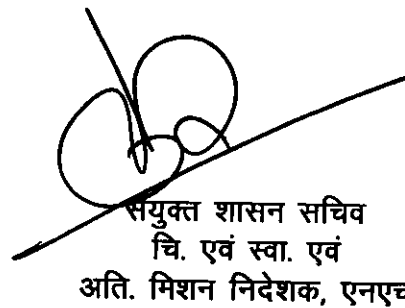 संयुक्त शासन सचिव
चि. एवं स्वा. एवं
अति. मिशन निदेशक, एनएच